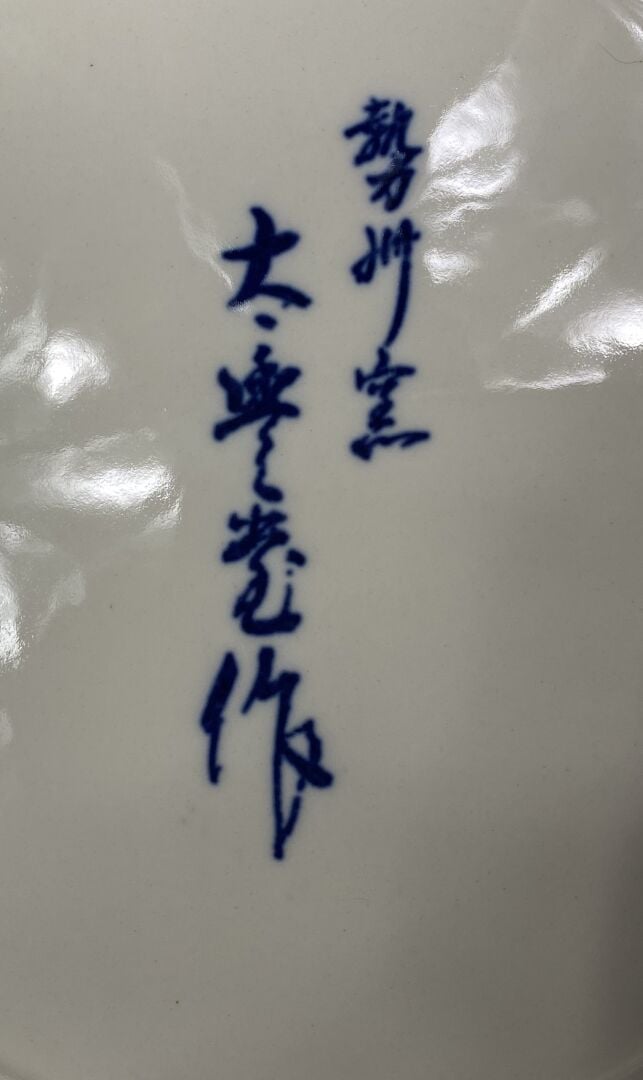 勢州窯
大興堂作